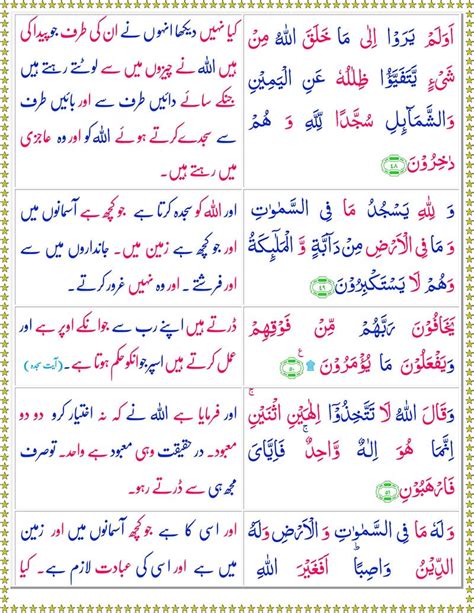 اَوَلَمْ يَرَوْا اِلٰى مَا خَلَقَ اللّٰهُ مِنْ
شَىْءٍ يَّتَفَيَّؤُا ظِلٰلُهٗ عَنِ الْيَمِيْنِ
وَالشَّمَآىِٕلِ سُجَّدًا لِّلّٰهِ وَ هُمْ
دٰخِرُوْنَ ﴿۴۸﴾
کیا نہیں دیکھا انہوں نے ان کی طرف جو پیدا کی
ہیں اللہ نے چیزوں میں سے لوٹتے رہتے ہیں
جنکے سائے دائیں طرف سے اور بائیں طرف
سے سجدے کرتے ہوئے اللہ کو اور وہ عاجزی
میں رہتے ہیں۔
وَ لِلّٰهِ يَسْجُدُ مَا فِى السَّمٰوٰتِ
وَ مَا فِى الْاَرْضِ مِنْ دَآبَّةٍ وَّ الْمَلٰٓىِٕكَةُ
وَهُمْ لَا يَسْتَكْبِرُوْنَ ﴿۴۹﴾
اور اللہ کو سجدہ کرتا ہے جو کچھ ہے آسمانوں میں
اور جو کچھ ہے زمین میں۔ جانداروں میں سے
اور فرشتے ۔ اور وہ نہیں غرور کرتے۔
يَخَافُوْنَ رَبَّهُمْ مِّنْ فَوْقِهِمْ
وَيَفْعَلُوْنَ مَا يُؤْمَرُوْنَ ۩ ﴿۵۰﴾ ع
ڈرتے ہیں اپنے رب سے جو انکے اوپر ہے اور
عمل کرتے ہیں اسپر جو انکو حکم ہوتا ہے۔ (آیت سجدہ)
وَقَالَ اللّٰهُ لَا تَتَّخِذُوْۤا اِلٰهَيْنِ اثْنَيْنِ ۚ
اِنَّمَا هُوَ اِلٰهٌ وَّاحِدٌ ۚ فَاِيَّاىَ
فَارْهَبُوْنِ ﴿۵۱﴾
اور فرمایا ہے اللہ نے کہ نہ اختیار کرو دو دو
معبود۔ در حقیقت وہی معبود ہے واحد۔ تو صرف
مجھ ہی سے ڈرتے رہو۔
وَلَهٗ مَا فِى السَّمٰوٰتِ وَ الْاَرْضِ وَلَهُ
الدِّيْنُ وَاصِبًا ؕ اَفَغَيْرَ اللّٰهِ
اور اسی کا ہے جو کچھ آسمانوں میں اور زمین
میں ہے اور اسی کی عبادت لازم ہے۔ کیا